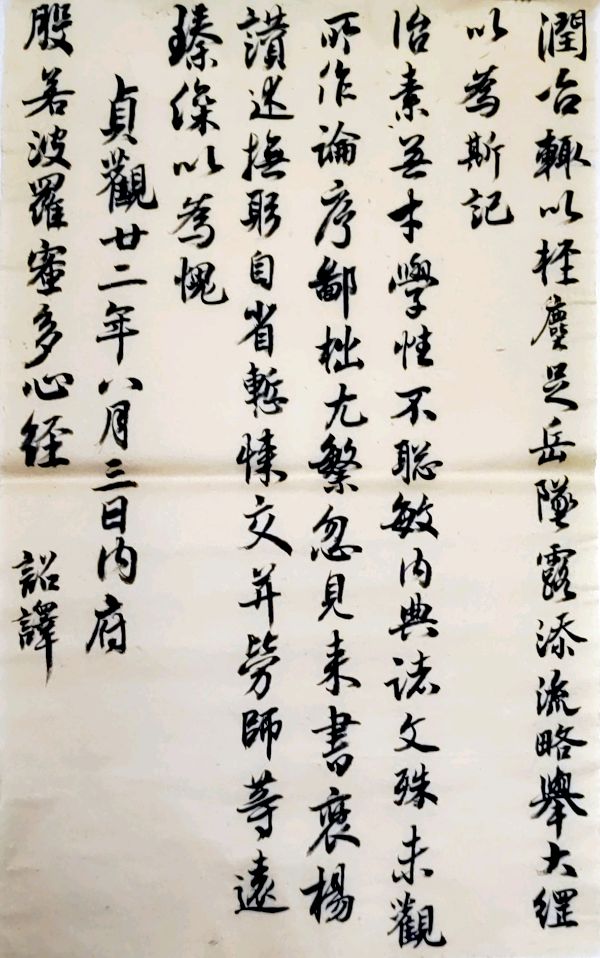 潤公輒以輕塵足岳墜露添流略舉大綱
以為斯記
治素無才學性不聡敏内典諸文殊未觀
所作論序鄙拙尤繁忽見来書褒楊
讃述撫躬自省慙悚交并勞師等遠
臻深以為愧
貞觀廿二年八月三日内府
般若波羅蜜多心経 詔譯